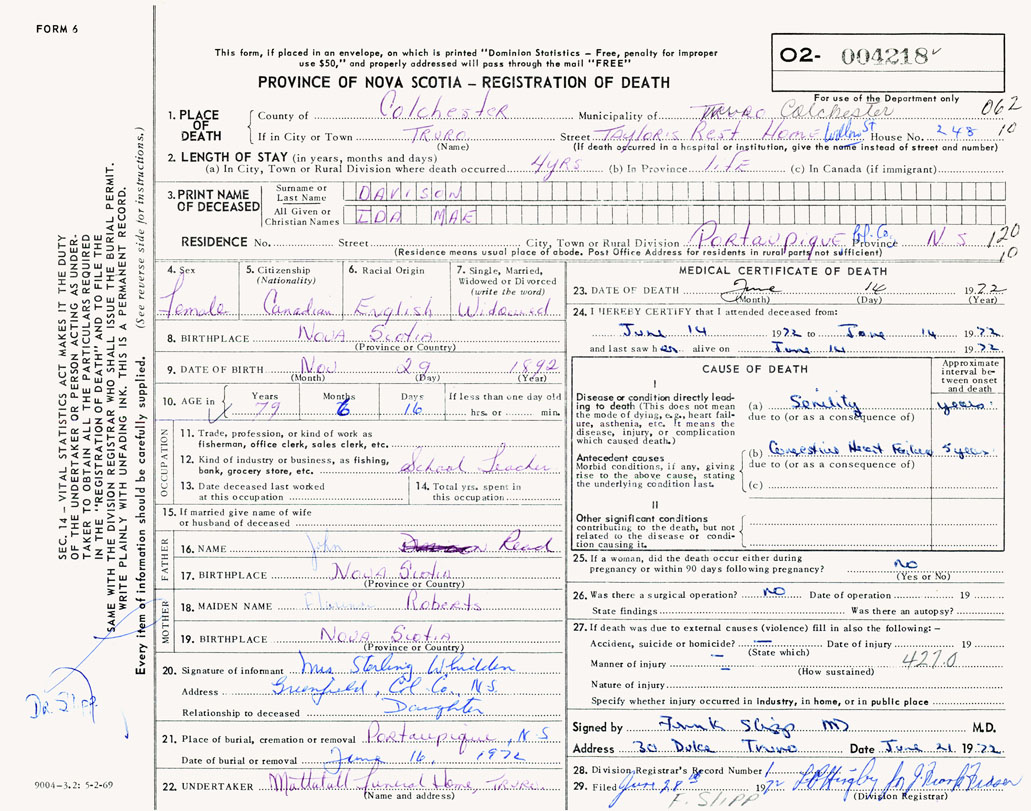 FORM 6
This form, if placed in an envelope, on which is printed "Dominion Statistics – Free, penalty for improper
use $50," and properly addressed will pass through the mail "FREE"
PROVINCE OF NOVA SCOTIA – REGISTRATION OF DEATH
O2- 004218
For use of the Department only
062
10
1. PLACE OF DEATH
County of Colchester Municipality of Truro Colchester
If in City or Town TRURO Street Taylor's Rest Home Willow St House No. 248
(Name) (If death occurred in a hospital or institution, give the name instead of street and number)
2. LENGTH OF STAY (in years, months and days)
(a) In City, Town or Rural Division where death occurred 4yrs (b) In Province life (c) In Canada (if immigrant)
3. PRINT NAME OF DECEASED
Surname or Last Name DAVISON
All Given or Christian Names IDA MAE
RESIDENCE No. Street City, Town or Rural Division Portaupique Col. Co. Province N S 120
10
(Residence means usual place of abode. Post Office Address for residents in rural party not sufficient)
4. Sex
Female
5. Citizenship
(Nationality)
Canadian
6. Racial Origin
English
7. Single, Married,
Widowed or Divorced
(write the word)
Widowed
8. BIRTHPLACE Nova Scotia
(Province or Country)
9. DATE OF BIRTH Nov 29 1892
(Month) (Day) (Year)
10. AGE in Years Months Days If less than one day old
79 6 16 hrs. or min.
OCCUPATION
11. Trade, profession, or kind of work as
fisherman, office clerk, sales clerk, etc.
12. Kind of industry or business, as fishing,
bank, grocery store, etc. School Teacher
13. Date deceased last worked
at this occupation
14. Total yrs. spent in
this occupation
15. If married give name of wife
or husband of deceased
FATHER
16. NAME John Read
17. BIRTHPLACE Nova Scotia
(Province or Country)
MOTHER
18. MAIDEN NAME Florence Roberts
19. BIRTHPLACE Nova Scotia
(Province or Country)
20. Signature of informant Mrs Sterling Whidden
Address Greenfield, Col. Co., N.S.
Relationship to deceased Daughter
21. Place of burial, cremation or removal Portaupique, N S
Date of burial or removal June 16, 1972
22. UNDERTAKER Mattatall Funeral Home, Truro
(Name and address)
MEDICAL CERTIFICATE OF DEATH
23. DATE OF DEATH June 14 1972
(Month) (Day) (Year)
24. I HEREBY CERTIFY that I attended deceased from:
June 14 1972 to June 14 1972
and last saw her alive on June 14 1972
CAUSE OF DEATH
Approximate interval between onset and death
I
Disease or condition directly leading to death (This does not
mean the mode of dying, e.g., heart failure,
asthenia, etc. It means the
disease, injury, or complication
which caused death.)
(a) Senility years
due to (or as a consequence of)
Antecedent causes
Morbid conditions, if any, giving
rise to the above cause, stating
the underlying condition last.
(b) Congestive Heart Failure 5 years
due to (or as a consequence of)
(c)
II
Other significant conditions
contributing to the death, but not
related to the disease or condition
causing it.
25. If a woman, did the death occur either during
pregnancy or within 90 days following pregnancy? NO
(Yes or No)
26. Was there a surgical operation? NO Date of operation 19
State findings Was there an autopsy?
27. If death was due to external causes (violence) fill in also the following: –
Accident, suicide or homicide? – Date of injury 19
(State which)
Manner of injury – 427.0
(How sustained)
Nature of injury
Specify whether injury occurred in industry, in home, or in public place
Signed by Frank Slipp MD M.D.
Address 30 Duke Truro Date June 21 1972
28. Division Registrar's Record Number
29. Filed June 28th 1972
(Division Registrar)
F. SLIPP
SEC. 14 – VITAL STATISTICS ACT MAKES IT THE DUTY
OF THE UNDERTAKER OR PERSON ACTING AS UNDERTAKER
TO OBTAIN ALL THE PARTICULARS REQUIRED
IN THE "REGISTRATION OF DEATH" AND TO FILE THE
SAME WITH THE DIVISION REGISTRAR WHO SHALL ISSUE THE BURIAL PERMIT.
WRITE PLAINLY WITH UNFADING INK. THIS IS A PERMANENT RECORD.
Every item of information should be carefully supplied. (See reverse side for instructions.)
Dr. Slipp
9004-3.2: 5-2-69